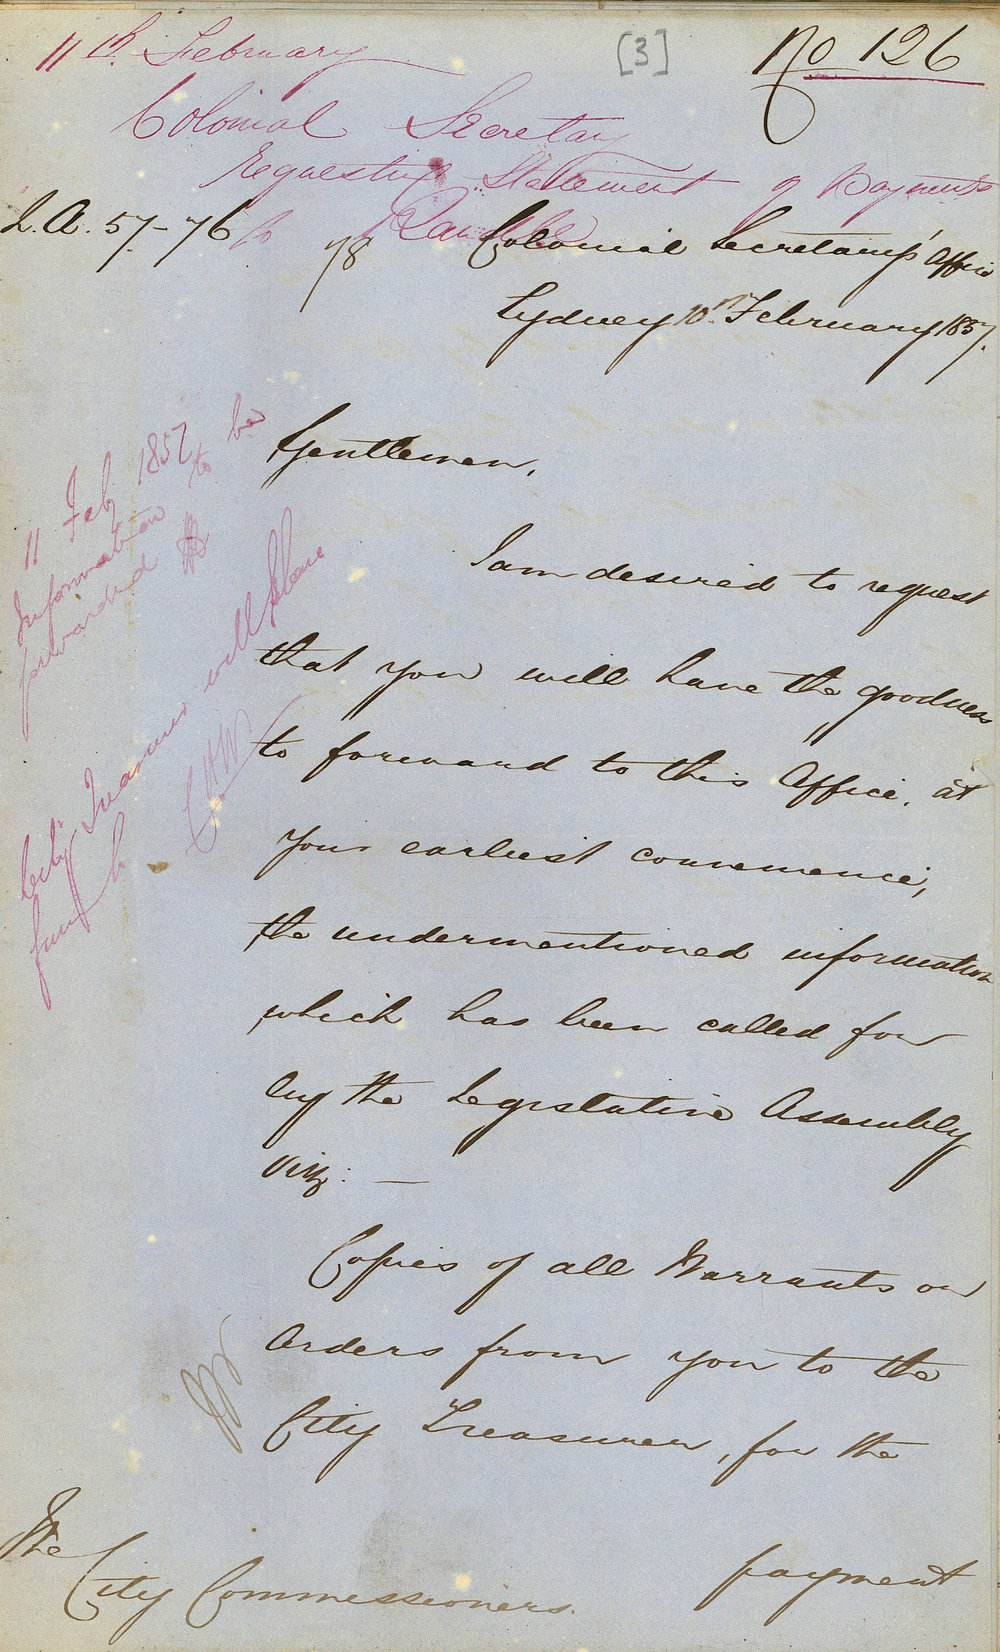 11th February
[3]
No 126
Colonial Secretary
requesting Statement of Payments
to Randle
L.A. 57-76
78
Colonial Secretary's Office
Sydney 10th February 1857.
Gentlemen,
I am desired to request
that you will have the goodness
to forward to this Office, at
your earliest convenience,
the undermentioned information
which has been called for
by the Legislative Assembly
viz: —
Copies of all Warrants or
Orders from you to the
City Treasurer, for the
payment
The
City Commissioners.
11 Feb 1857
Information to be
forwarded
City Treasurer will please
furnish